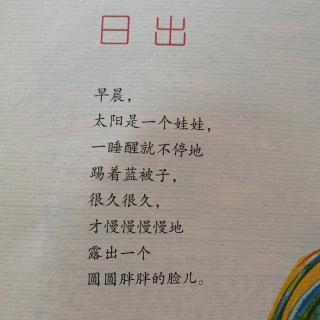 日出
早晨，
太阳是一个娃娃，
一睡醒就不停地
踢着蓝被子，
很久很久，
才慢慢慢慢地
露出一个
圆圆胖胖的脸儿。